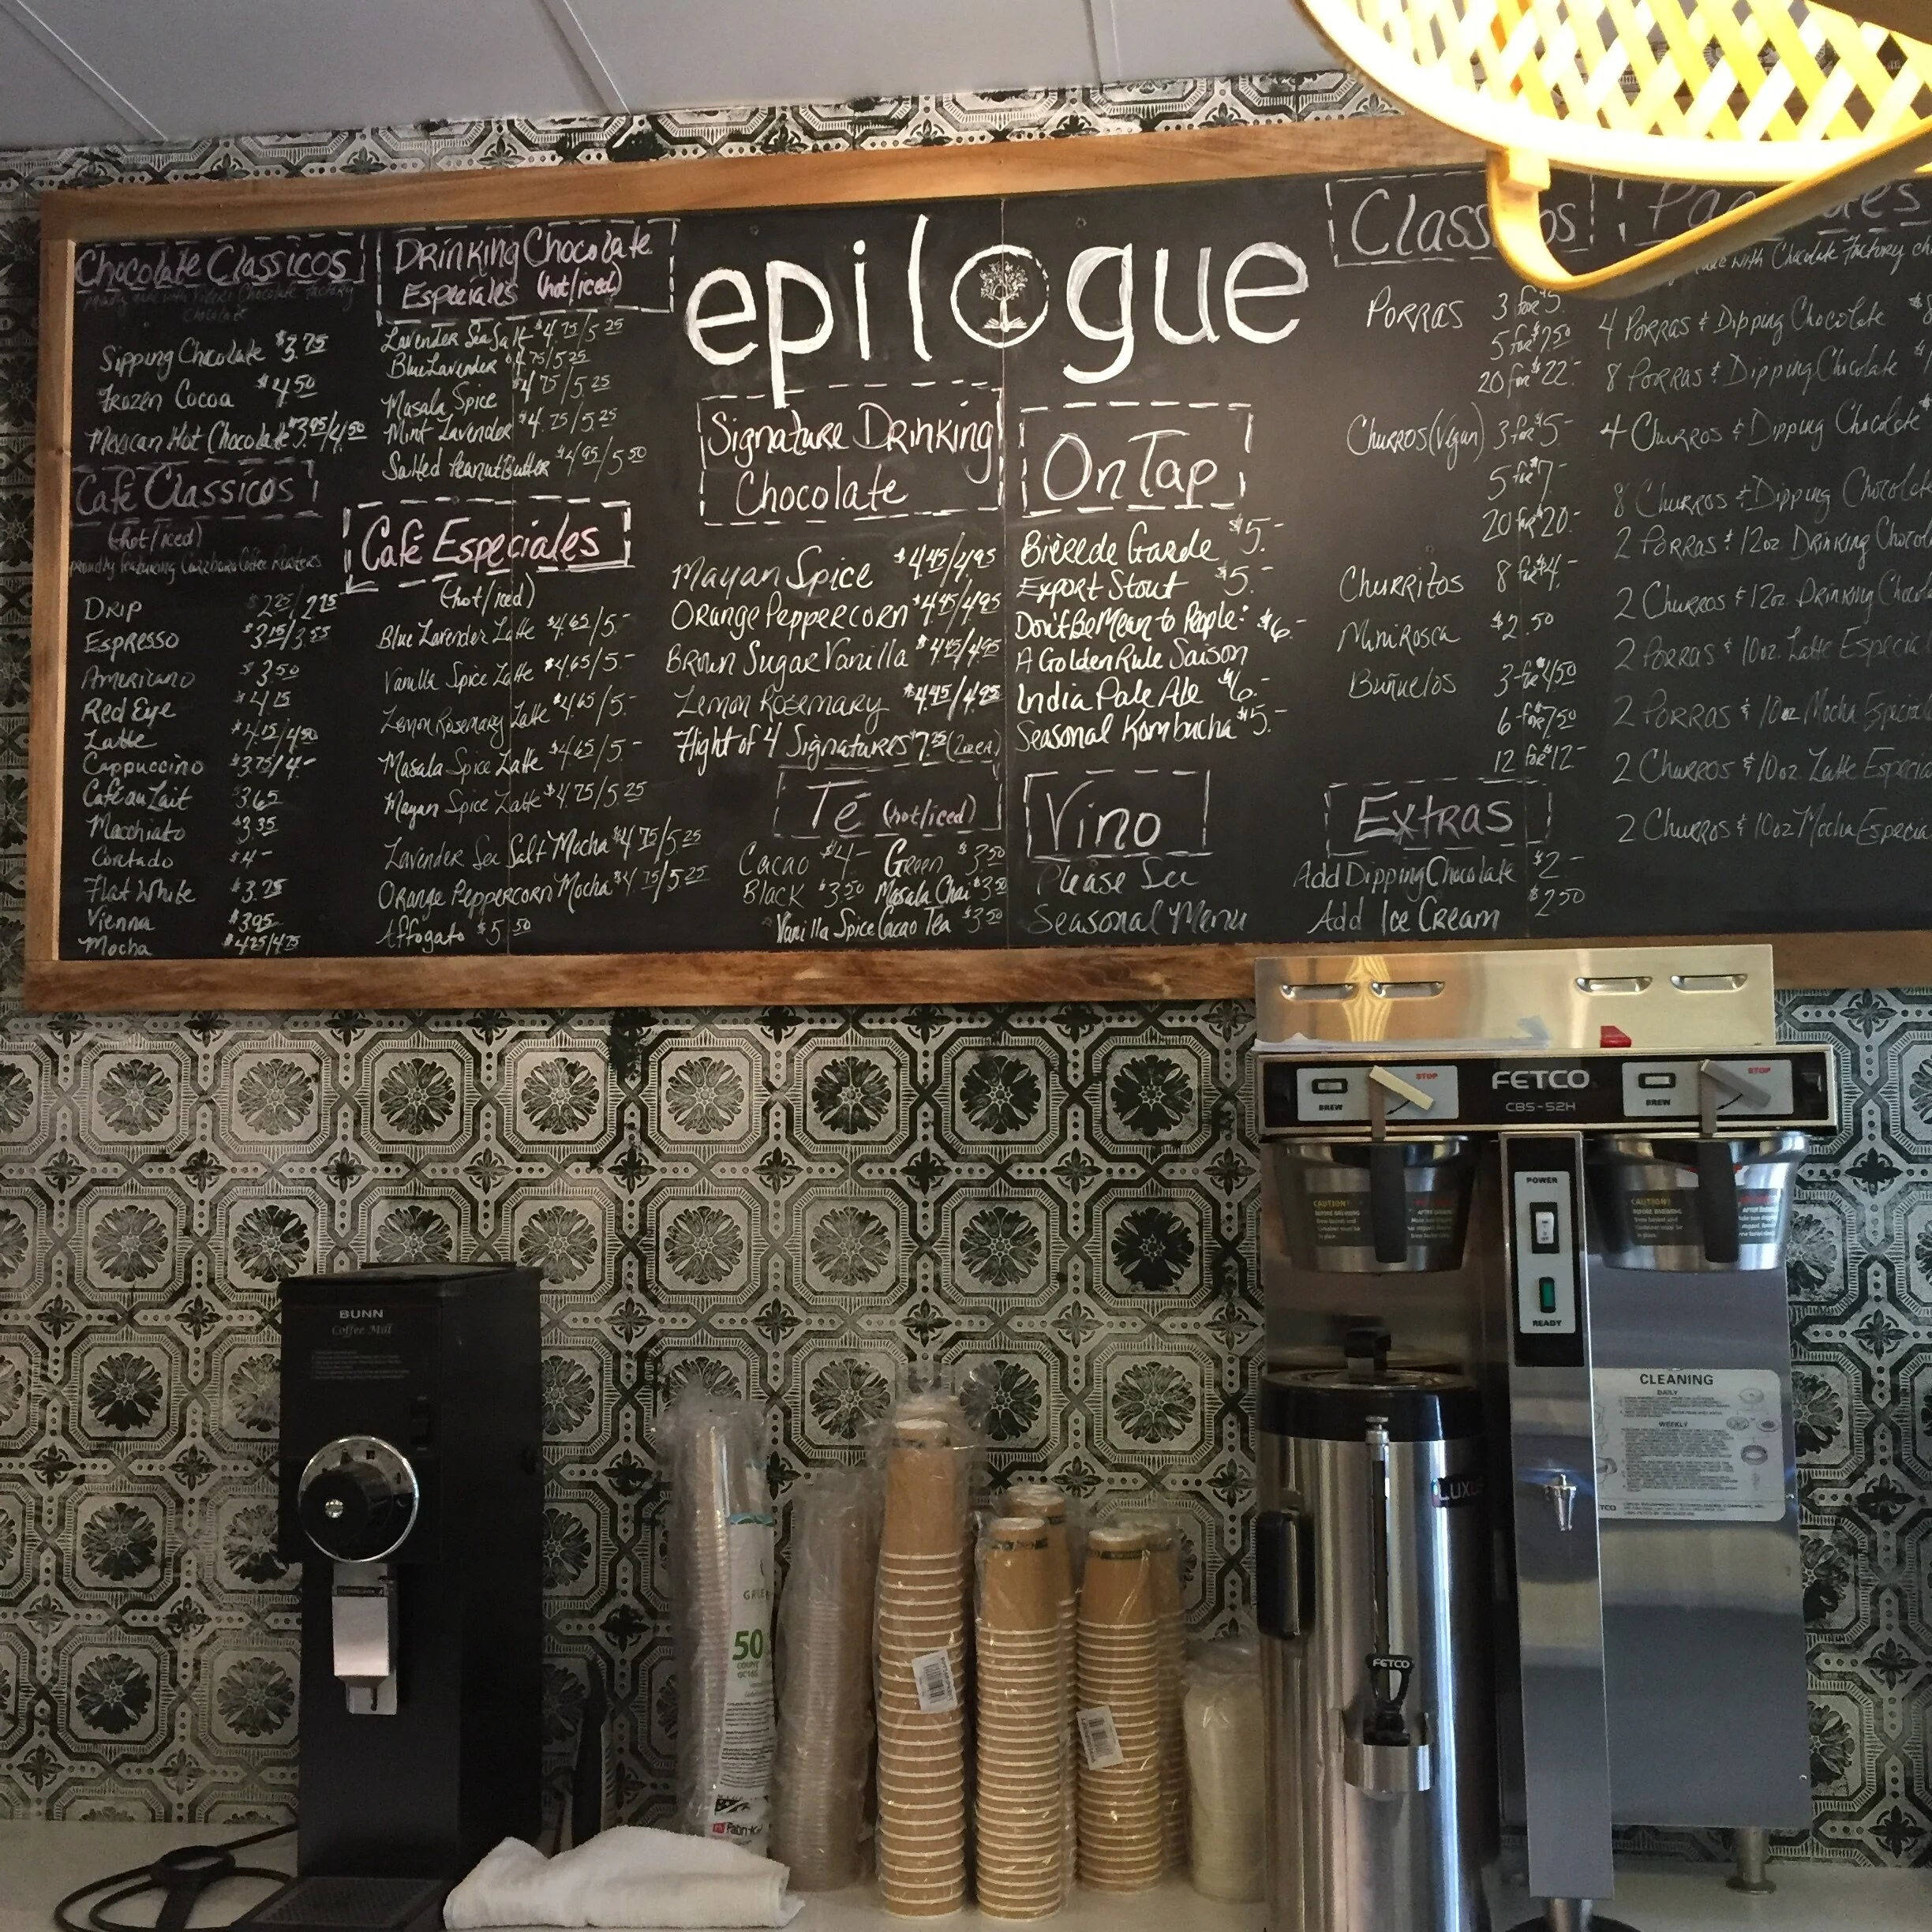 Chocolate Classicos
Sipping Chocolate $3.75
Frozen Cocoa $4.50
Mexican Hot Chocolate $3.95/4.50
Café Classicos
(hot/iced)
Drip $2.25/2.75
Espresso $3.15/3.55
Americano $3.50
Red Eye $4.15
Latte $4.15/4.50
Cappuccino $3.75/4-
Café au Lait $3.65
Macchiato $3.35
Cortado $4-
Flat White $3.75
Vienna $3.95
Mocha $4.25/4.75
Drinking Chocolate
Especiales (hot/iced)
Lavender Sea Salt $4.75/5.25
Blue Lavender $4.75/5.25
Masala Spice $4.75/5.25
Mint Lavender $4.75/5.25
Salted Peanut Butter $4.95/5.50
Café Especiales
(hot/iced)
Blue Lavender Latte $4.65/5-
Vanilla Spice Latte $4.65/5-
Lemon Rosemary Latte $4.65/5-
Masala Spice Latte $4.65/5-
Mayan Spice Latte $4.75/5.25
Lavender Sea Salt Mocha $4.75/5.25
Orange Peppercorn Mocha $4.75/5.25
Affogato $5.50
epilogue
Signature Drinking
Chocolate
Mayan Spice $4.45/4.95
Orange Peppercorn $4.45/4.95
Brown Sugar Vanilla $4.45/4.95
Lemon Rosemary $4.45/4.95
Flight of 4 Signatures $7.75
Té (hot/iced)
Cacao $4- Green $3.50
Black $3.50 Masala Chai $3.50
Vanilla Spice Cacao Tea $3.50
On Tap
Bière de Garde $5-
Export Stout $5-
Don't Be Mean to People: $6-
A Golden Rule Saison
India Pale Ale $6-
Seasonal Kombucha $5-
Vino
Please See
Seasonal Menu
Porras 3 for $5-
5 for $7.50
20 for $22-
Churros (Vegan) 3 for $5-
5 for $7-
20 for $20-
Churritos 8 for $4-
Mini Rosca $2.50
Buñuelos 3 for $4.50
6 for $7.50
12 for $12-
Extras
Add Dipping Chocolate $2-
Add Ice Cream $2.50
with Chocolate Factory
4 Porras & Dipping Chocolate
8 Porras & Dipping Chocolate
4 Churros & Dipping Chocolate
8 Churros & Dipping
2 Porras & 12oz Drinking
2 Churros & 12oz Drinking
2 Porras & 10oz Latte
2 Porras & 10oz Mocha
2 Churros & 10oz Latte
2 Churros & 10oz Mocha
FETCO
CBS-52H
BREW STOP
BREW STOP
CAUTION!
CAUTION!
POWER
READY
CLEANING
DAILY
WEEKLY
LUXUS
FETCO
BUNN
Coffee Mill
50
COUNT